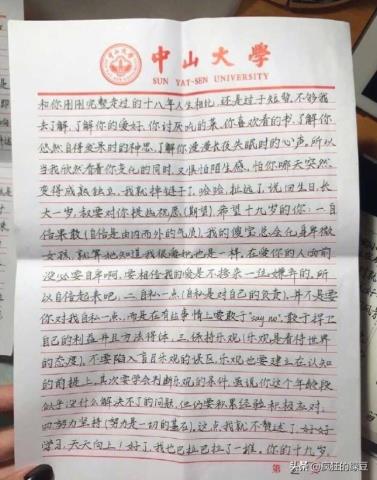 中山大學
SUN YAT-SEN UNIVERSITY
和你刚刚完整走过的十八年人生相比，还是过于短暂，不够我
去了解，了解你的爱好、你讨厌吃的菜、你喜欢看的书，了解你
悠然自得发呆时的神思，了解你漫漫长夜失眠时的心声。所以
当我欣然看着你变化的同时，又惧怕陌生感，怕你哪天突然
变得成熟独立，我就掉链子了，哈哈，扯远了，说回生日，长
大一岁，我要对你提些祝愿（期望），希望十九岁的你：一自
信果敢（自信是由内而外的气质），我的傻宝总会化身卑微
女孩，就算她知道我很
一样，在爱你的人面前
没必要自卑啊，要相信我的爱是不掺杂一丝嫌弃的，所
以自信起来吧，二自私一点（自私是对自己的负责），并不是要
你对我自私一点，而是在有些事情上要敢于"say no"，敢于捍卫
自己的利益并且方法得体，三保持乐观（乐观是看待世界
的态度），不要陷入盲目乐观的误区，乐观也要建立在认知
的前提上，其次要学会判断乐观的条件，虽说你这个年龄段
似乎没什么解决不了的问题，但仍要积累经验积极应对，
四努力坚持（努力是一切的基础），这点我就不赘述了，好好
学习，天天向上！好了，我也巴拉巴拉了一堆，你的十九岁，
第 页
头条@疯狂的绿豆